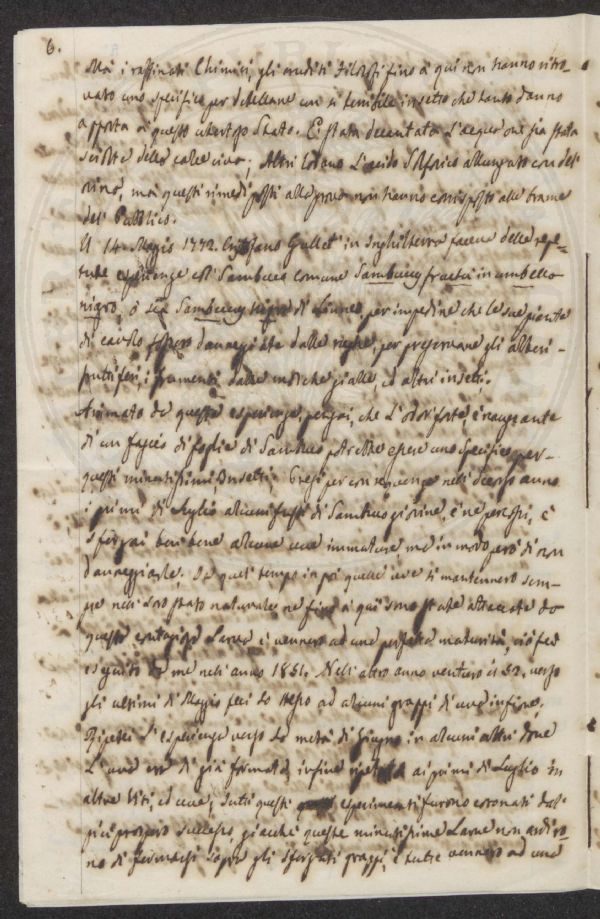 6.
Ma i raffinati Chimici, gli eruditi Filosofi fino a qui non hanno ritro-
vato uno specifico per debellare un sì terribile insetto che tanto danno
apporta a questo ubertoso Stato. È stata decantata l'acqua ove sia stata
sciolta della calce viva; Altri lodano l'acido Solforico allungato con dell'
orina, ma questi rimedi posti alla prova non hanno corrisposto alle brame
del Pubblico.
Il 14 Maggio 1772. Cristofano Gullet in Inghilterra faceva delle repe-
tute esperienze col Sambuco comune Sambucus fructu in umbella
nigro, o sia Sambucus nigra di Linneo, per impedire che le sue piante
di cavolo fossero danneggiate dalle ruche, per preservare gli alberi
fruttiferi, i frumenti dalle mosche gialle, ed altri insetti.
Animato da queste esperienze, pensai, che l'odor forte, e nauseante
di un fascio di foglie di Sambuco potrebbe essere uno specifico per
questi minutissimi Insetti; Presi per conseguenza nello scorso anno
i primi di Luglio alcuni fusti di Sambuco giovine, e ne percossi, e
sferzai ben bene alcune uve immature ma in modo però di non
danneggiarle. Da quel tempo in poi quelle uve si mantennero sem-
pre nel loro stato naturale ne fino a qui sono state attaccate da
questa contagiosa Larva e vennero ad una perfetta maturità, ciò fu
eseguito da me nell'anno 1851. Nell'altro anno venturo il 52. verso
gli ultimi di Maggio feci lo stesso ad alcuni grappi d'uva in fiore,
Ripetei l'esperienza verso la metà di Giugno in alcuni altri dove
l'uva era di già formata, infine ripetuta ai primi di Luglio in
altre Viti, ed uve; tutti questi esperimenti furono coronati dal
più prospero successo, giacchè queste minutissime Larve non ardiro-
no di fermarsi sopra gli sferzati grappi, e tutte vennero ad una